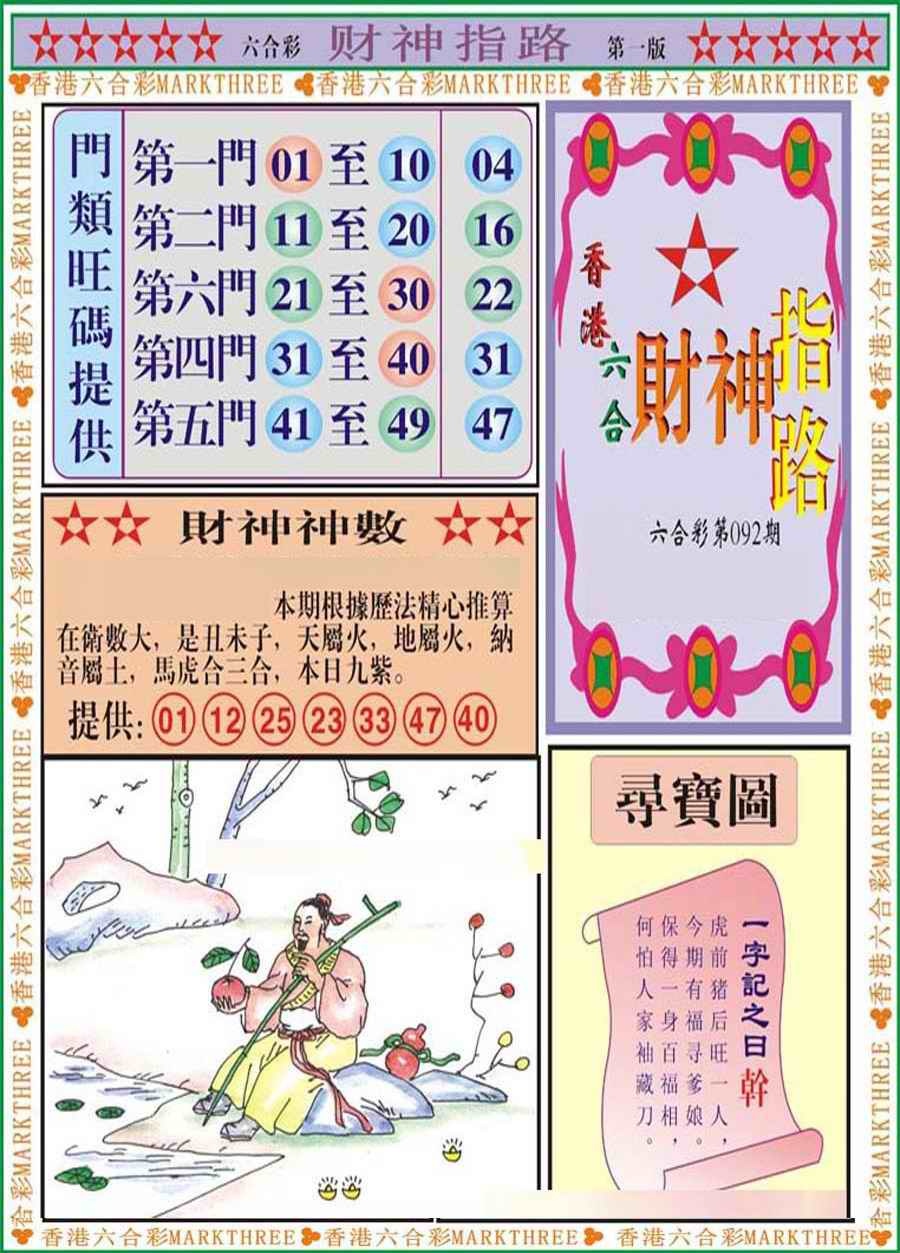 六合彩 财神指路 第一版
香港六合彩MARKTHREE 香港六合彩MARKTHREE 香港六合彩MARKTHREE
香港六合彩MARKTHREE 香港六合彩MARKTHREE 香港六合彩MARKTHREE 彩MARKTHREE
門類旺碼提供
第一門 01 至 10 04
第二門 11 至 20 16
第六門 21 至 30 22
第四門 31 至 40 31
第五門 41 至 49 47
香港六合
財神指路
六合彩第092期
財神神數
本期根據歷法精心推算
在術數大，是丑未子，天屬火，地屬火，納
音屬土，馬虎合三合，本日九紫。
提供: 01 12 25 23 33 47 40
尋寶圖
一字記之曰 幹
虎前猪后旺一人，
今期有福寻爹娘。
保得一身百福相，
何怕人家袖藏刀。
香港六合彩MARKTHREE 香港六合彩MARKTHREE 香港六合彩MARKTHREE 合彩MARKTHREE
香港六合彩MARKTHREE 香港六合彩MARKTHREE 香港六合彩MARKTHREE